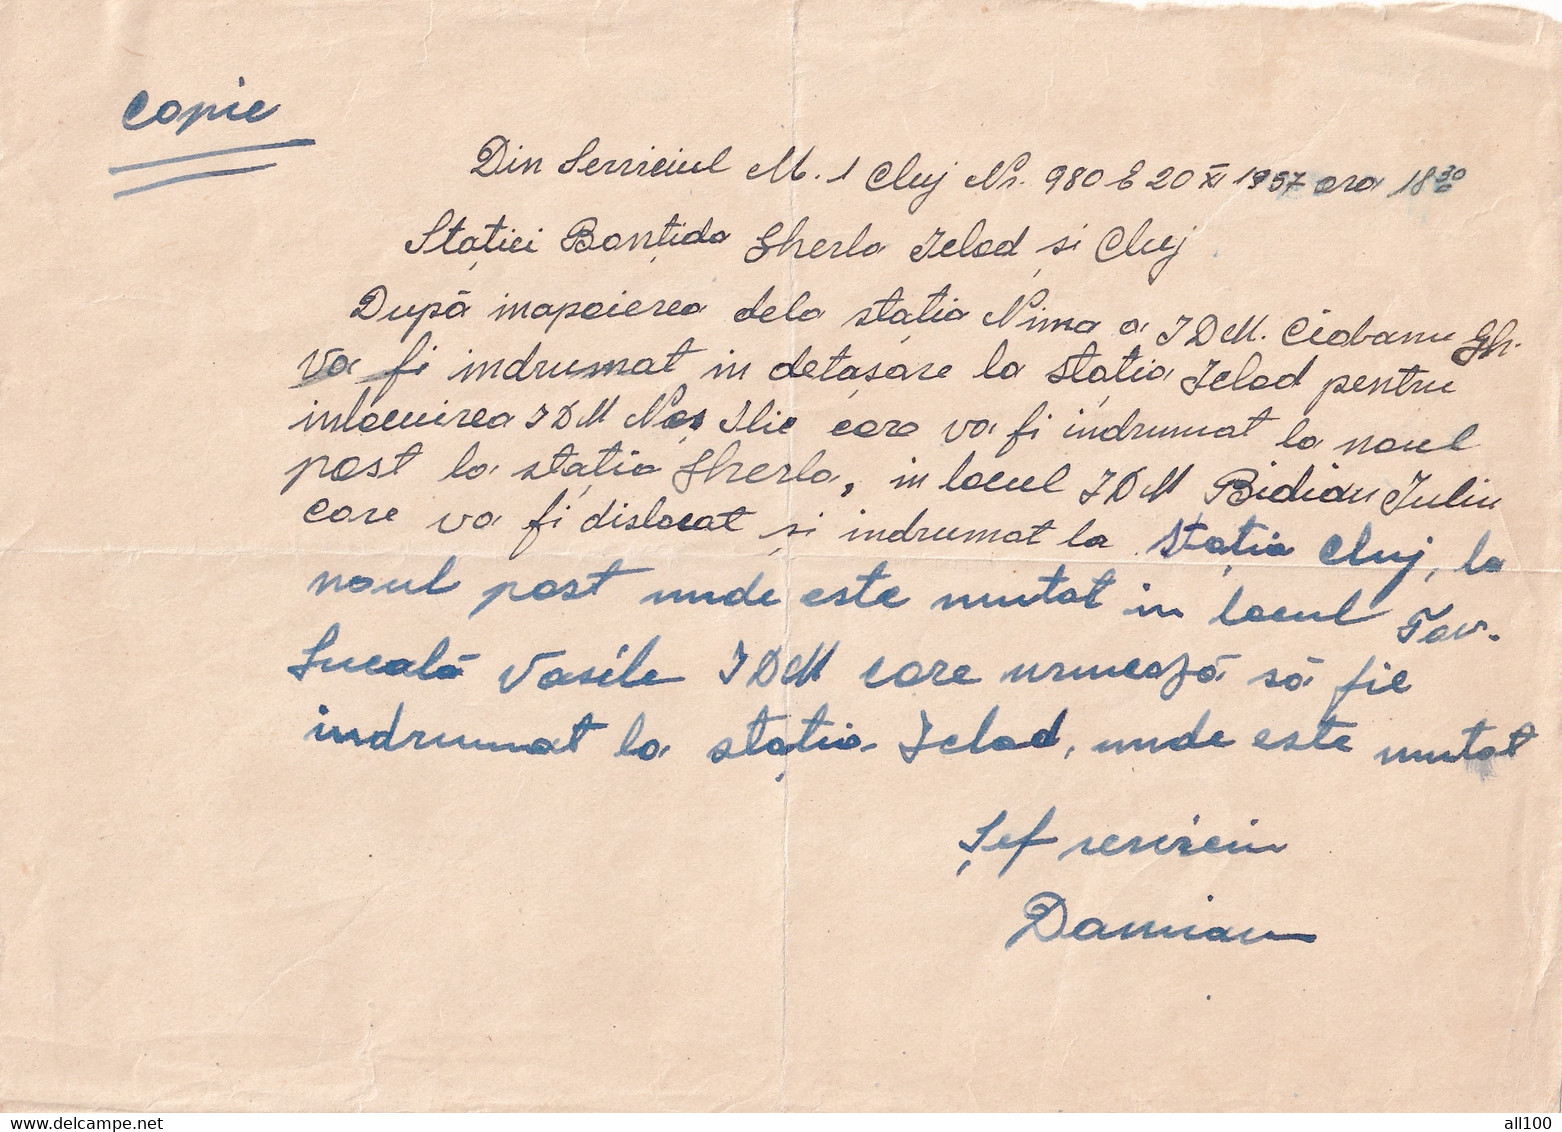 Copie
Din Serviciul M. 1 Cluj Nr. 980 E 20 XI 1957 ora 18 30
Stației Bonțida Gherla Iclod și Cluj
După inapoierea dela stația Nima a IDM. Ciobanu Gh.
va fi indrumat in detașare la stația Iclod pentru
inlocuirea IDM Ilie care va fi indrumat la noul
post la stația Gherla, in locul IDM Bidian Iuliu
care va fi dislocat și indrumat la stația Cluj, la
noul post unde este mutat in locul Tov.
Sucală Vasile IDM care urmează să fie
indrumat la stația Iclod, unde este mutat
Șef serviciu
Damian
all100